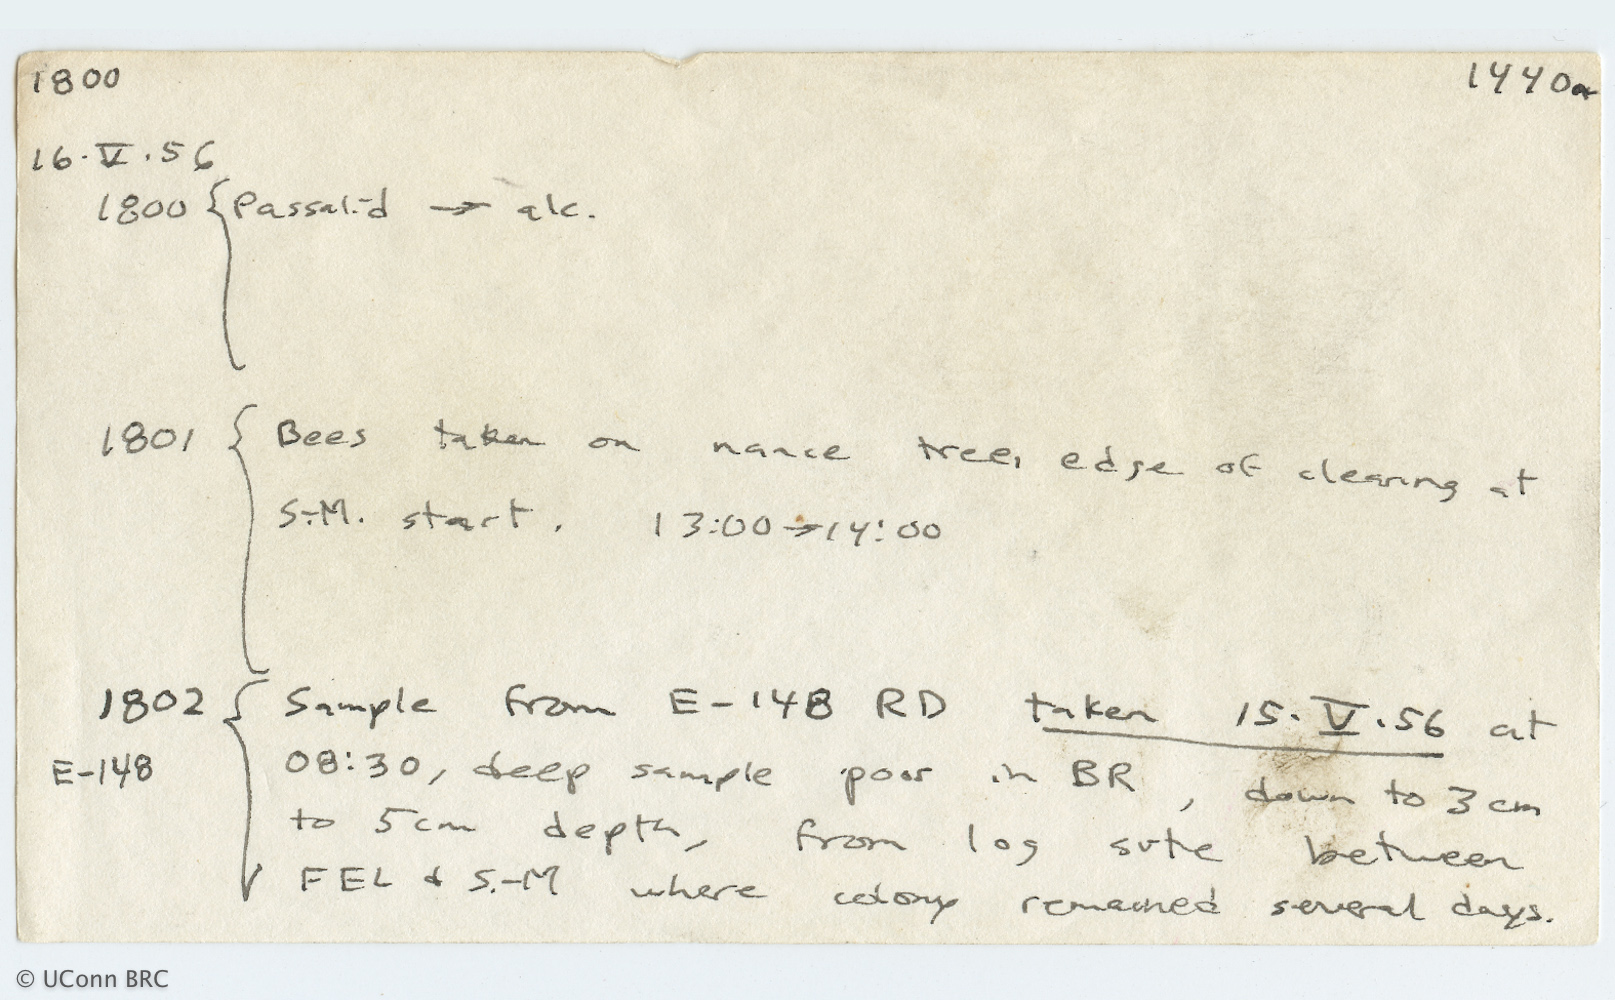 1800 1440a
16.V.56
1800 {Passalid → alc.
1801 { Bees taken on nance tree, edge of clearing at
S-M. start. 13:00→14:00
1802 { Sample from E-148 RD taken 15.V.56 at
E-148 08:30, deep sample poor in BR, down to 3 cm
to 5cm depth, from log sute between
FEL & S.-M where colony remained several days.
© UConn BRC